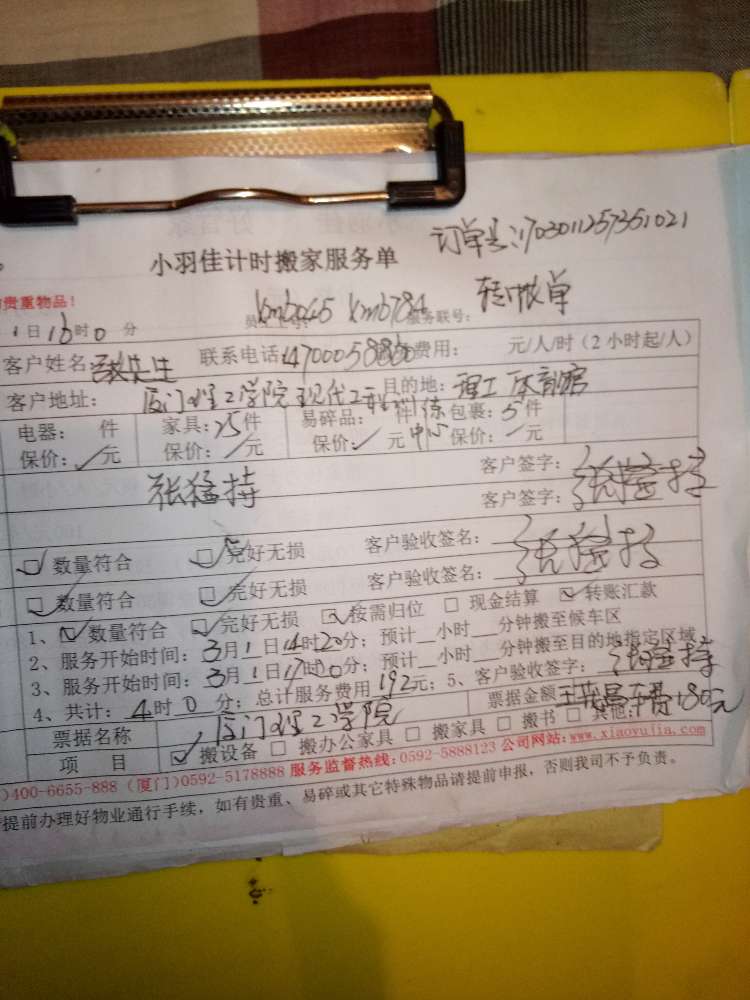 订单号:1703011257351021
小羽佳计时搬家服务单
贵重物品!
转账单
服务联号:
1日16时0分
客户姓名: 先生 联系电话: 费用: 元/人/时(2小时起/人)
客户地址: 厦门理工学院现代工 训练中心 目的地: 理工体育馆
电器: 件 家具:25件 易碎品: 件 包裹:5件
保价: 元 保价: 元 保价: 元 保价: 元
张猛持 客户签字:
客户签字:
数量符合 完好无损 客户验收签名:
数量符合 完好无损 客户验收签名:
1、数量符合 完好无损 按需归位 现金结算 转账汇款
2、服务开始时间:3月1日14时20分;预计__小时__分钟搬至候车区
3、服务开始时间:3月1日17时20分;预计__小时__分钟搬至目的地指定区域
4、共计:4时0分;总计服务费用192元;5、客户验收签字:
票据名称 厦门理工学院 票据金额 车费180元
项目 搬设备 搬办公家具 搬家具 搬书 其他:
)400-6655-888 (厦门)0592-5178888 服务监督热线:0592-5888123 公司网站:www.xiaoyujia.com
提前办理好物业通行手续,如有贵重、易碎或其它特殊物品请提前申报,否则我司不予负责。